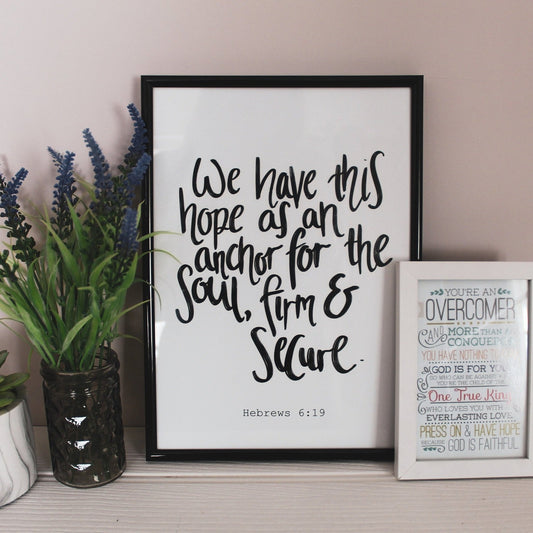 We have this
hope as an
anchor for the
Soul, firm &
Secure.
Hebrews 6:19
YOU'RE AN
OVERCOMER
AND MORE THAN A
CONQUEROR
YOU HAVE NOTHING TO
GOD IS FOR YOU
SO WHO CAN BE AGAINST
YOU'RE THE CHILD OF THE
One True King
WHO LOVES YOU WITH
EVERLASTING LOVE
PRESS ON & HAVE HOPE
BECAUSE GOD IS FAITHFUL